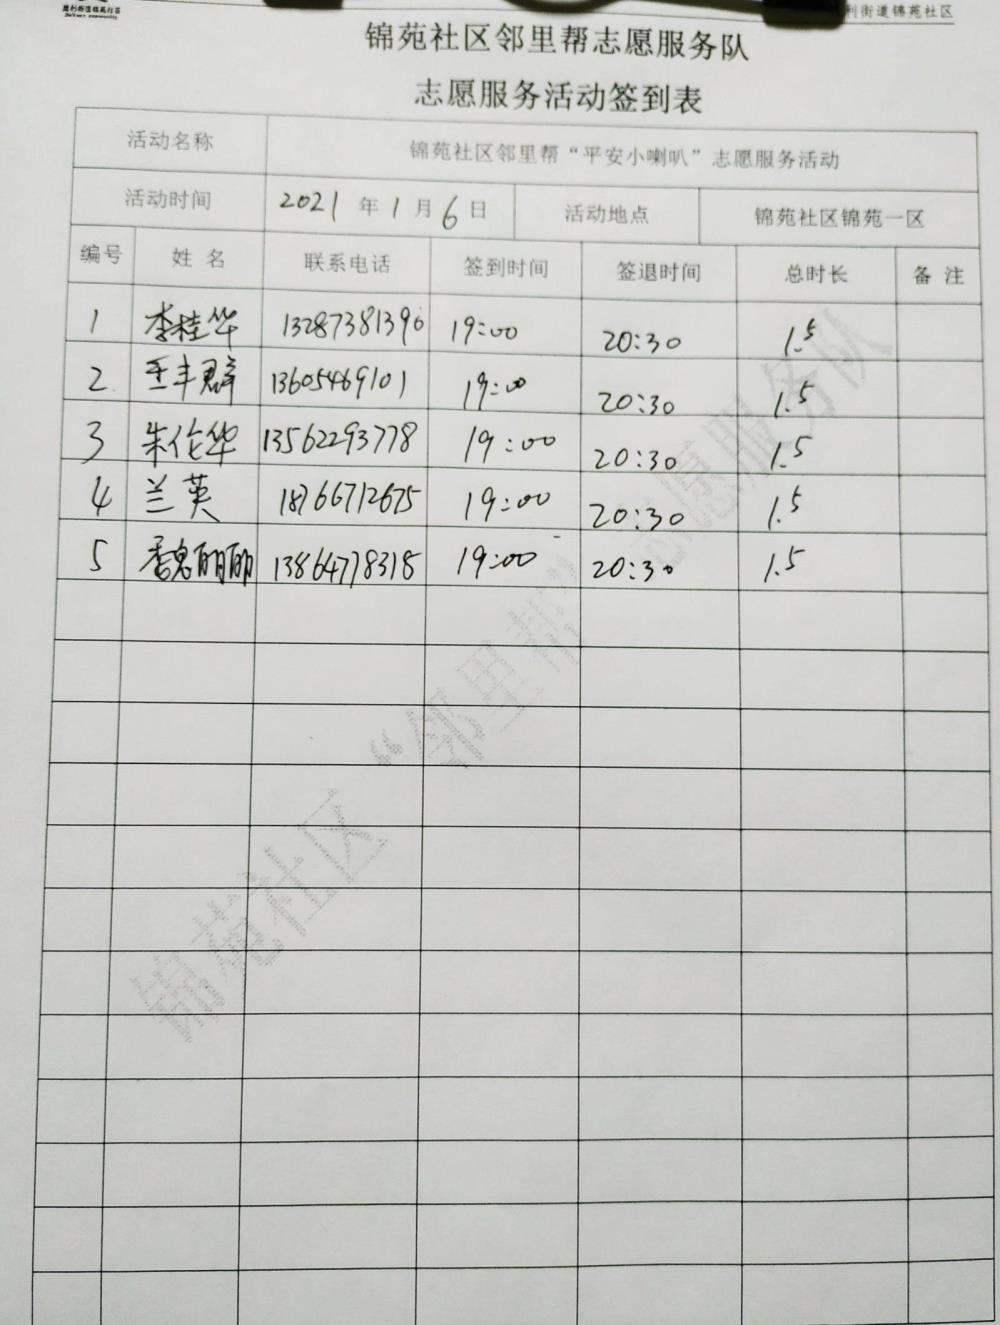 利街道锦苑社区
锦苑社区邻里帮志愿服务队
志愿服务活动签到表
活动名称 锦苑社区邻里帮“平安小喇叭”志愿服务活动
活动时间 2021年1月6日 活动地点 锦苑社区锦苑一区
编号 姓名 联系电话 签到时间 签退时间 总时长 备注
1 李桂华 13287381396 19:00 20:30 1.5
2. 丰群 13605469101 19:00 20:30 1.5
3 朱伦华 13562293778 19:00 20:30 1.5
4 兰英 18766712675 19:00 20:30 1.5
5 魏丽丽 13864778318 19:00 20:30 1.5
锦苑社区“邻里帮”志愿服务队